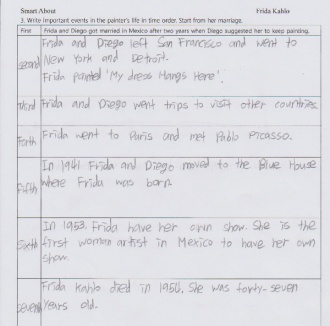 Smart About
Frida Kahlo
3. Write important events in the painter's life in time order. Start from her marriage.
First Frida and Diego got married in Mexico after two years when Diego suggested her to keep painting.
second Frida and Diego left San Francisco and went to
New York and Detroit.
Frida painted 'My dress Hangs Here'.
third Frida and Diego went trips to visit other countries
Forth Frida went to Paris and met Pablo Picasso.
Fifth In 1941 Frida and Diego moved to the Blue House
where Frida was born
Sixth In 1953. Frida have her own show. She is the
first woman artist in Mexico to have her own
show.
seventh Frida Kahlo died in 1954. She was forty-seven
years old.